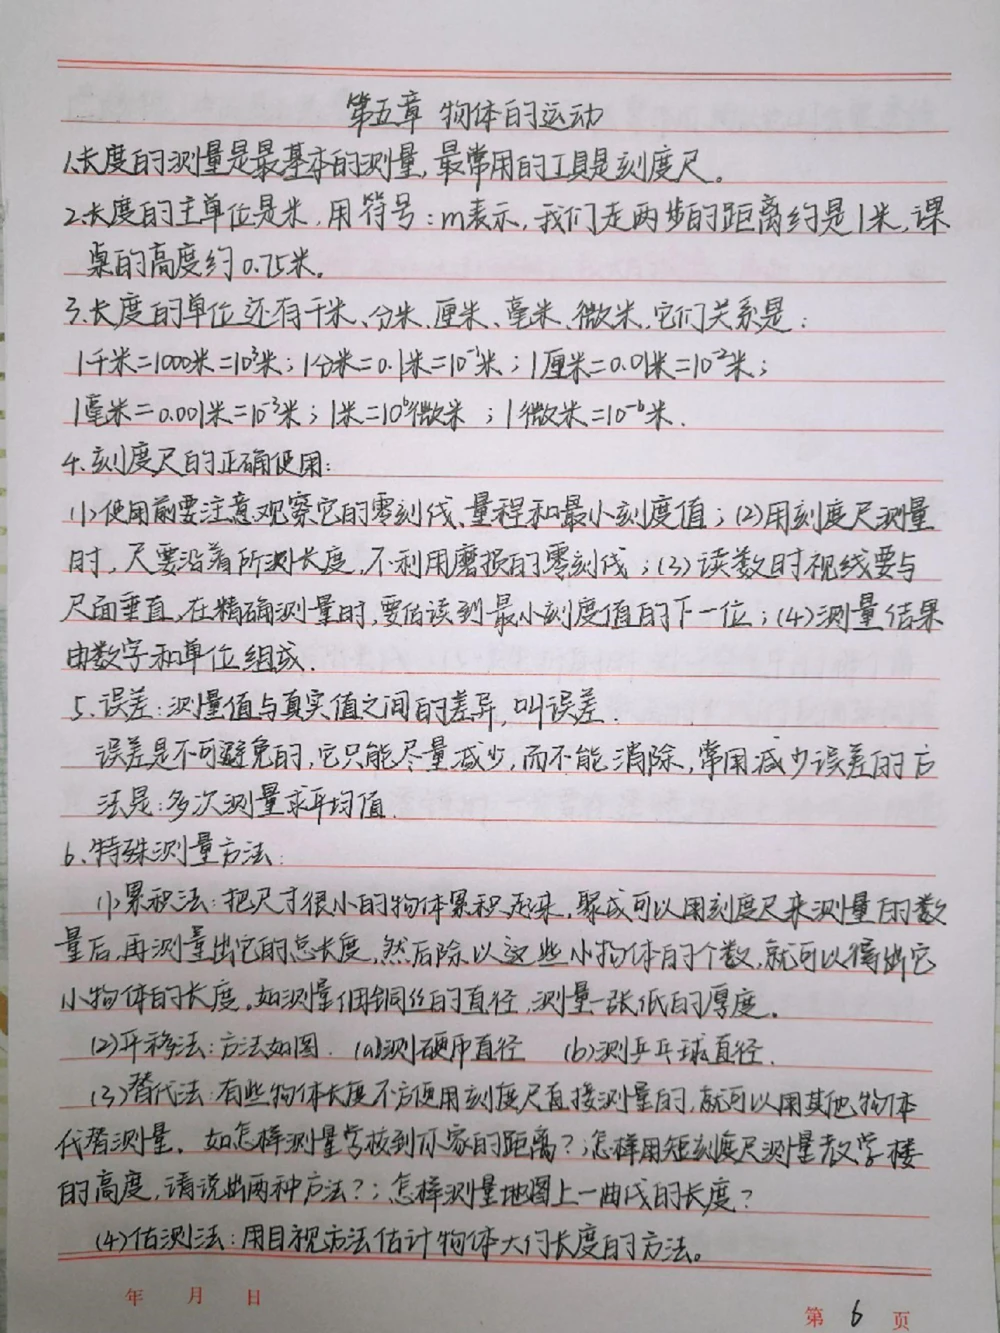 第五章 物体的运动
1.长度的测量是最基本的测量,最常用的工具是刻度尺。
2.长度的主单位是米,用符号:m表示,我们走两步的距离约是1米,课
桌的高度约0.75米。
3.长度的单位还有千米、分米、厘米、毫米、微米,它们关系是:
1千米=1000米=10³米;1分米=0.1米=10⁻¹米;1厘米=0.01米=10⁻²米;
1毫米=0.001米=10⁻³米;1米=10⁶微米;1微米=10⁻⁶米.
4.刻度尺的正确使用:
(1)使用前要注意观察它的零刻线、量程和最小刻度值;(2)用刻度尺测量
时,尺要沿着所测长度,不利用磨损的零刻线;(3)读数时视线要与
尺面垂直,在精确测量时,要估读到最小刻度值的下一位;(4)测量结果
由数字和单位组成.
5.误差:测量值与真实值之间的差异,叫误差.
误差是不可避免的,它只能尽量减少,而不能消除,常用减少误差的方
法是:多次测量求平均值.
6、特殊测量方法:
(1)累积法:把尺寸很小的物体累积起来,聚成可以用刻度尺来测量的数
量后,再测量出它的总长度,然后除以这些小物体的个数,就可以得出它
小物体的长度。如测量细铜丝的直径,测量一张纸的厚度。
(2)平移法:方法如图. (a)测硬币直径 (b)测乒乓球直径.
(3)替代法:有些物体长度不方便用刻度尺直接测量的,就可以用其他物体
代替测量。如怎样测量学校到你家的距离?;怎样用短刻度尺测量教学楼
的高度,请说出两种方法?;怎样测量地图上一曲线的长度?
(4)估测法:用目视方法估计物体大约长度的方法。
年 月 日
第 6 页